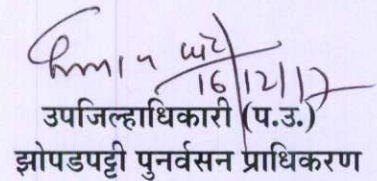 16/12/17
उपजिल्हाधिकारी (प.उ.)
झोपडपट्टी पुनर्वसन प्राधिकरण